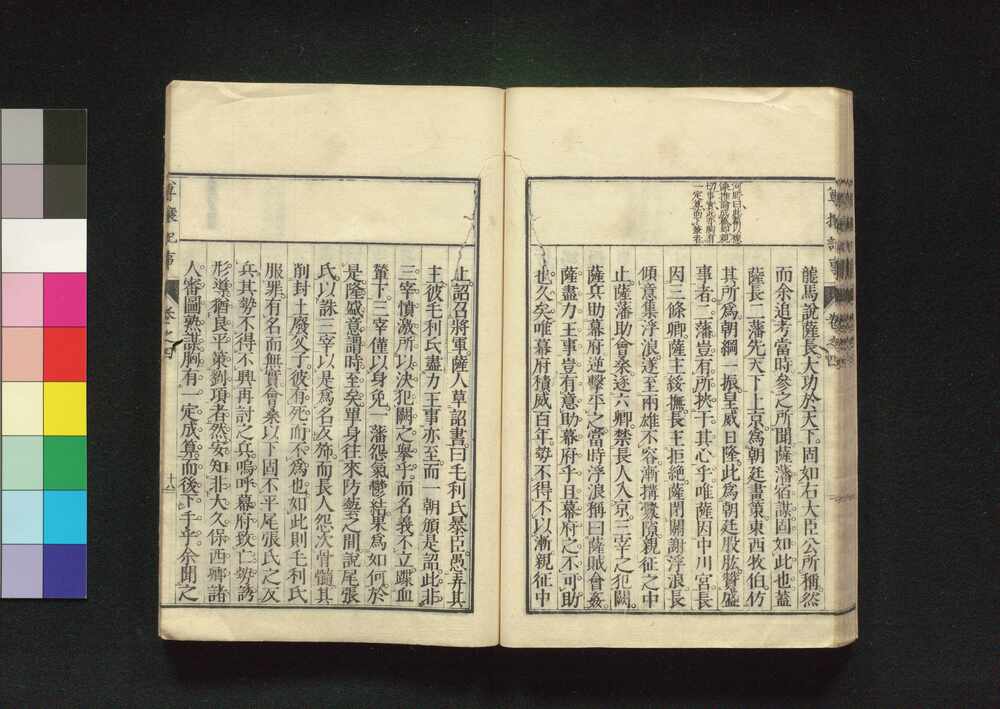 龍馬說薩長大功於天下固如右大臣公所稱然
而余追考當時參之所聞薩藩宿謀固如此也蓋
薩長二藩先天下上京爲朝廷畫策東西牧伯仿
其所爲朝綱一振皇威日隆此爲朝廷股肱贊盛
事者二藩豈有所挾于其心乎唯薩因中川宮長
因三條卿薩主綏撫長主拒絕薩閉關謝浮浪長
傾意集浮浪遂至兩雄不容漸搆釁隙親征之中
止薩藩助會桑逐六卿禁長人入京三宰之犯闕
薩兵助幕府逆擊平之當時浮浪稱曰薩賊會姦
薩盡力王事豈有意助幕府乎且幕府之不可助
也久矣唯幕府積威百年勢不得不以漸親征中
一定
止詔召將軍薩人草詔書曰毛利氏暴臣愚弄其
主彼毛利氏盡力王事亦至而一朝頒是詔此非
三宰憤激所以決犯闕之舉乎而名義不立蹀血
輦下三宰僅以身免一藩怨氣鬱結果爲如何於
是隆盛意謂時至矣單身往來防藝之間說尾張
氏以誅三宰以是爲名反斾而長人怨次骨髓其
削封土廢父子彼有死而不爲也如此則毛利氏
服罪有名而無實會桑以下固不平尾張氏之反
兵其勢不得不興再討之兵嗚呼幕府致亡勢誘
形導猶良平策劉項者然安知非大久保西鄕諸
人審圖熟謀胸有一定成算而後下手乎余聞之
尊攘紀事
卷之四
十八